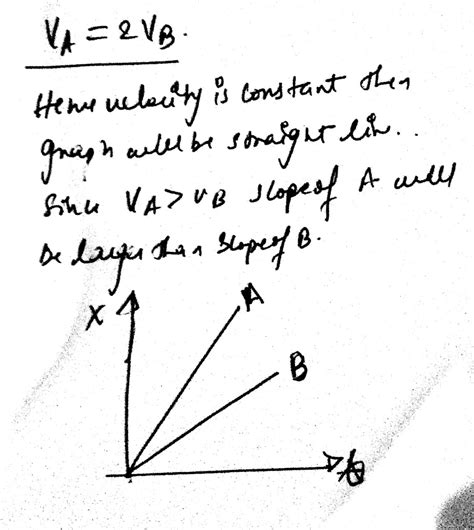 V_A = 2V_B.
Hence velocity is constant then
graph will be straight line..
Since V_A > V_B slope of A will
be larger than slope of B.
X
A
B